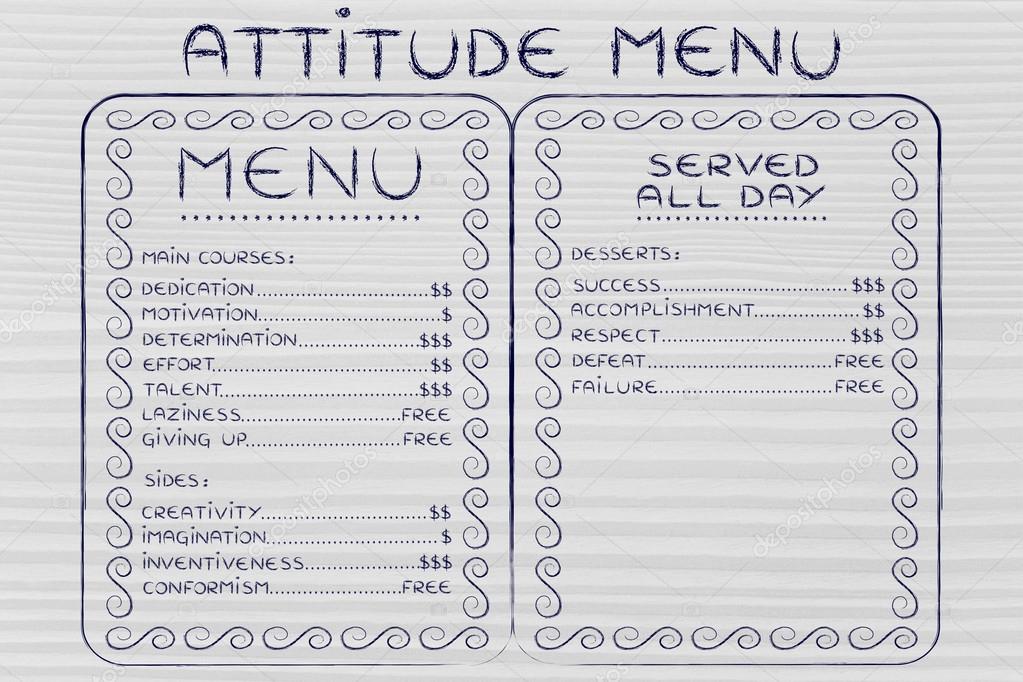 ATTITUDE MENU
MENU
MAIN COURSES:
DEDICATION..............................$$
MOTIVATION................................$
DETERMINATION.....................$$$
EFFORT.....................................$$
TALENT...................................$$$
LAZINESS............................FREE
GIVING UP...........................FREE
SIDES:
CREATIVITY.............................$$
IMAGINATION..............................$
INVENTIVENESS....................$$$
CONFORMISM.......................FREE
SERVED
ALL DAY
DESSERTS:
SUCCESS.................................$$$
ACCOMPLISHMENT...................$$
RESPECT.................................$$$
DEFEAT.................................FREE
FAILURE...............................FREE
depositphotos
depositphotos
depositphotos
depositphotos